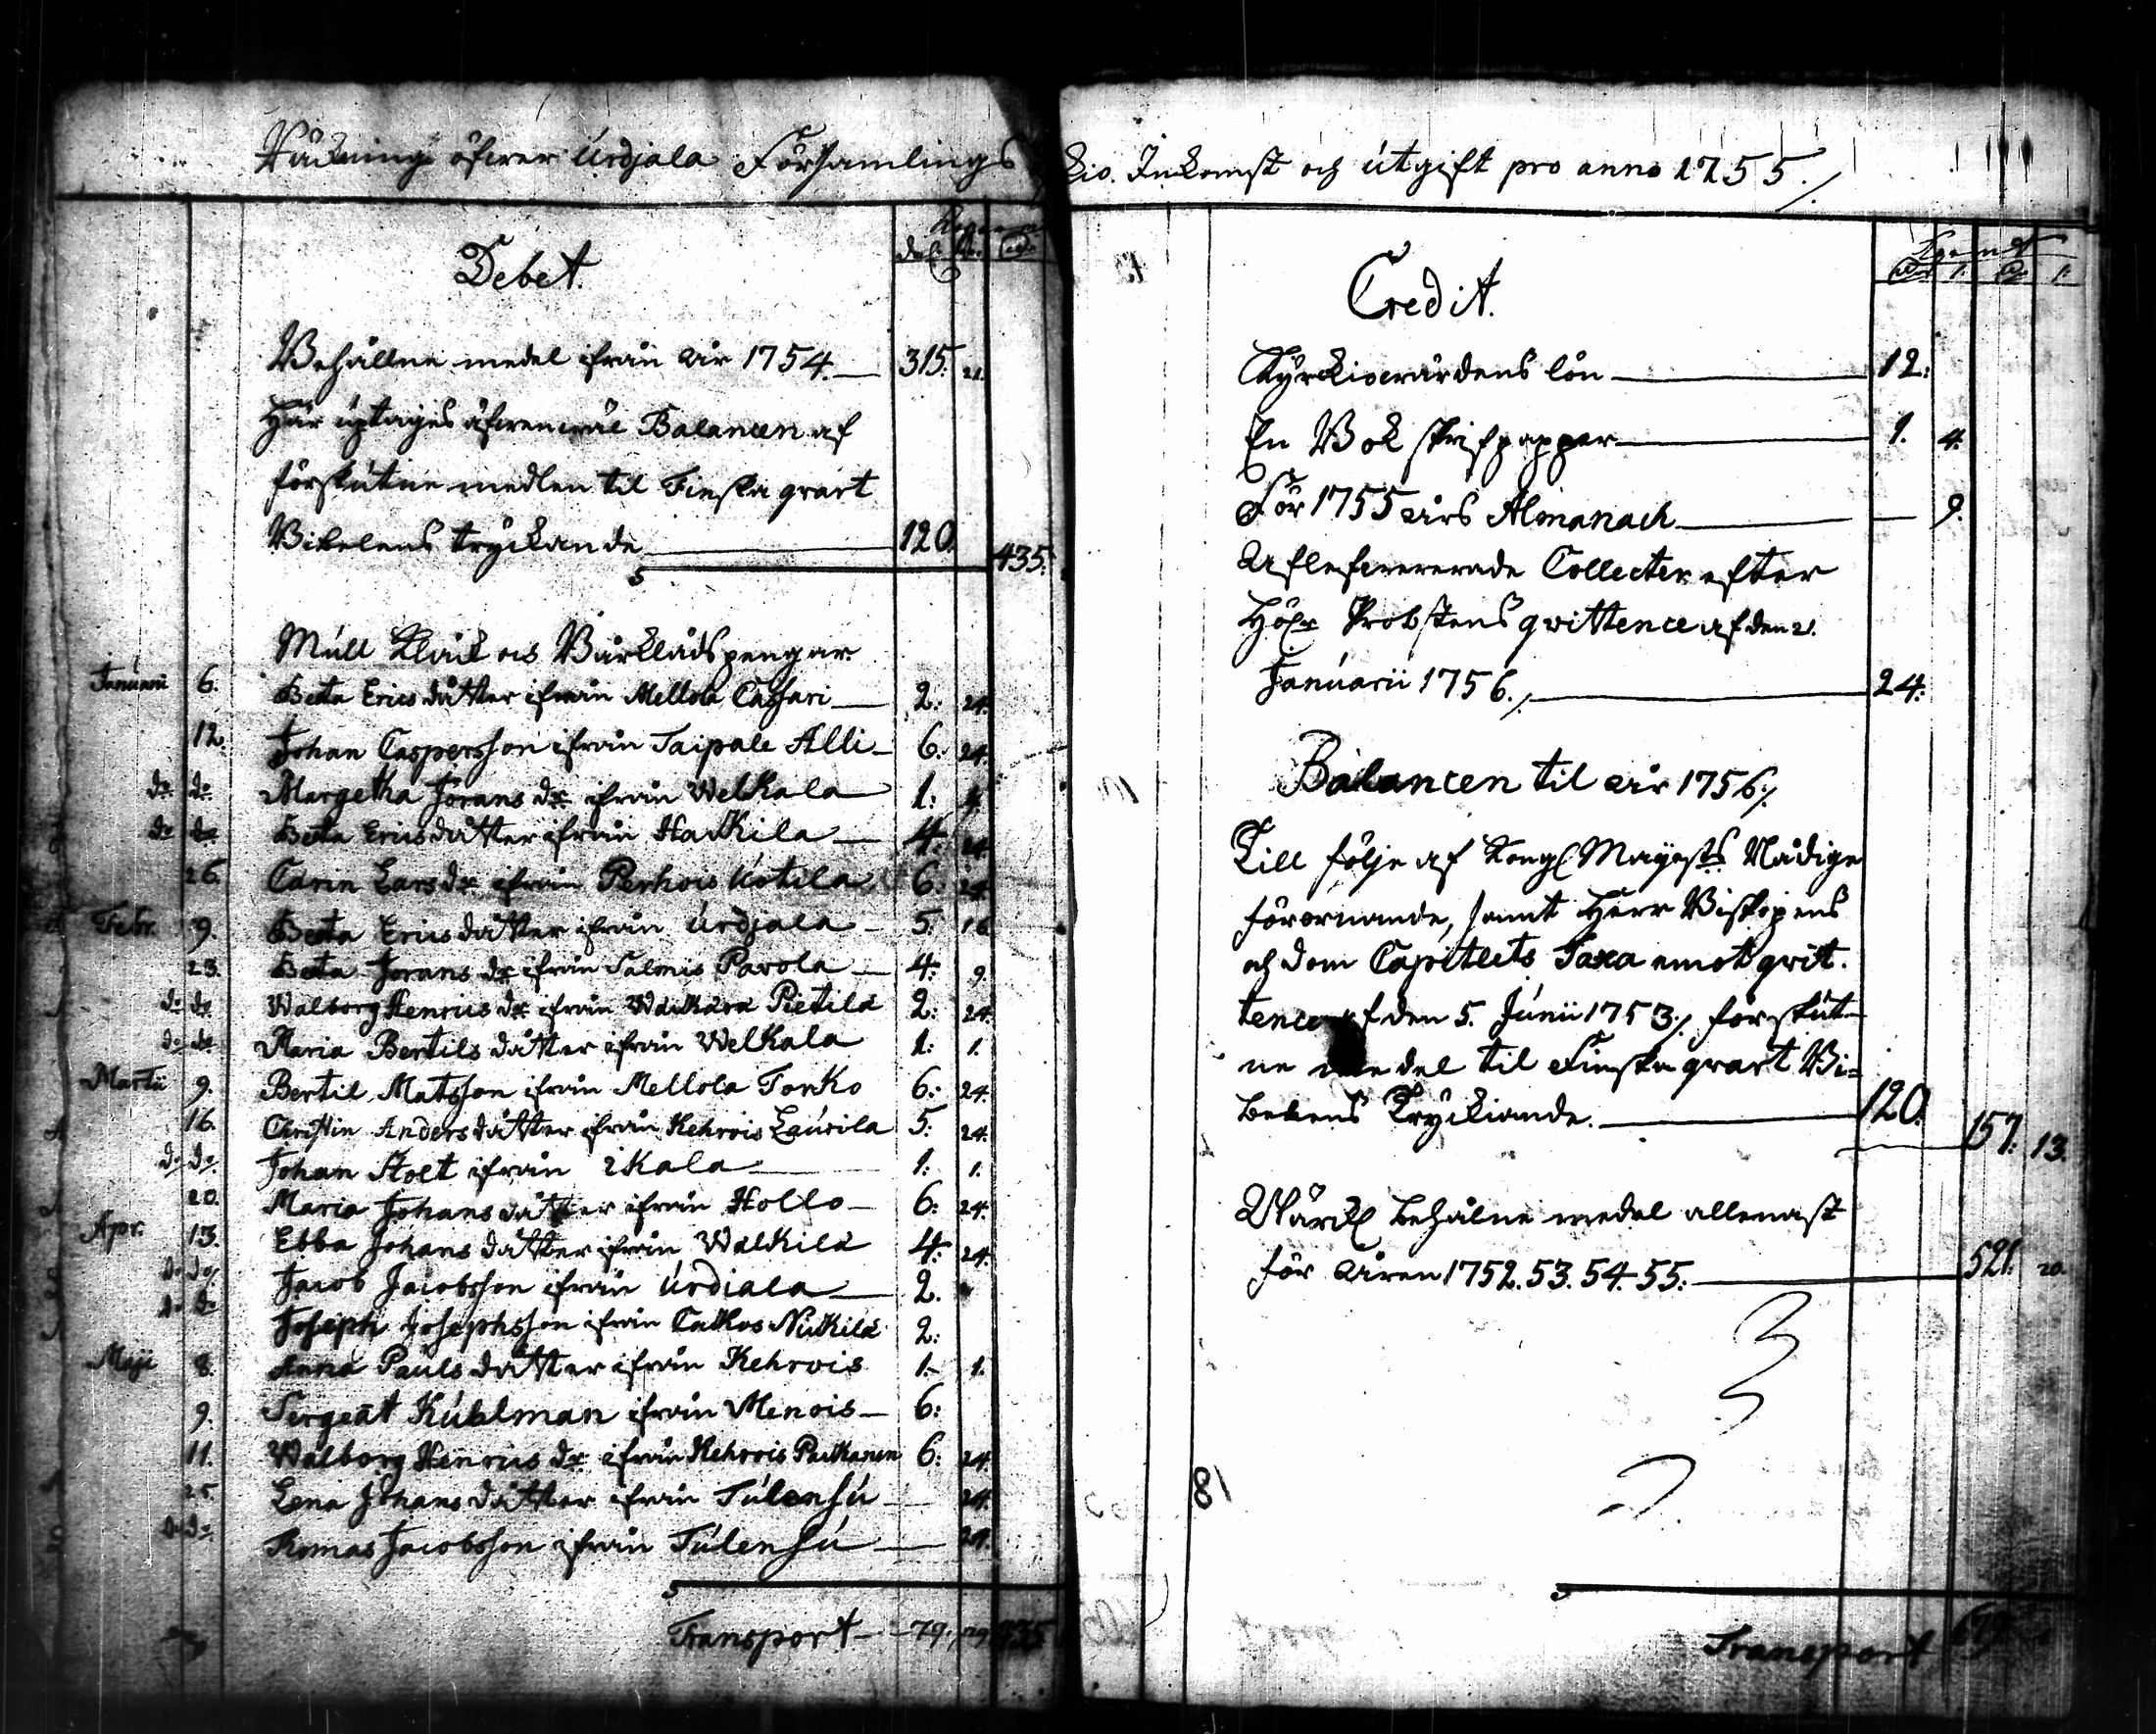 Räckning öfwer Urdjala Församlings kio. Inkomst och utgift pro anno 1755./.
Debet.
Behållne medel ifrån år 1754. 315: 21.
Här uptages äfwenwäl Balancen af
förskutne medlen til Finska qvart
Bibelens tryckande 120. 435:
Mull Kläck och Bårklädspengar.
Januarii 6. Beata Ericsdåtter ifrån Mellola Caspari 2: 24.
12. Johan Caspersson ifrån Taipale Alli 6: 24.
do. do. Margetha Jörans dr ifrån Welkala 1:
do do Beata Ericsdåtter ifrån Hackila 4: 24
26. Carin Lars dr ifrån Perhois Kotila 6: 24
Febr. 9. Beata Ericsdåtter ifrån Urdjala 5: 16
23. Beata Jörans dr ifrån Salmis Pavola 4: 9.
do do Walborg Henrics dr ifrån Wackara Pietilä 2: 24.
do do Maria Bertils dåtter ifrån Welkala 1: 1.
Martii 9. Bertil Matsson ifrån Mellola Torko 6: 24.
16. Christin Anders dåtter ifrån Kehrois Laurila 5: 24.
do do. Johan Stolt ifrån ikala 1: 1.
20. Maria Johans dåtter ifrån Hollo 6: 24.
Apr. 13. Ebba Johans dåtter ifrån Walkila 4: 24.
do do. Jacob Jacobsson ifrån Urdiala 2.
do do Joseph Josephsson ifrån Cackos Nickilä 2:
Maji 8. Anna Pauls dåtter ifrån Kehrois 1. 1.
9. Sergeat Kuhlman ifrån Menois 6:
11. Walborg Henrics dr ifrån Kehrois Packanen 6: 24.
25. Lena Johans dåtter ifrån Tulensu 24.
do do. Thomas Jacobsson ifrån Tulensu 24.
Transport 79. 435
Credit.
Kyrckiowärdens lön 12:
En Bok skrifpapper 1. 4.
För 1755 års Almanach 9.
Aflefwererade Collecter efter
Höglr Probstens qvittence af den 21.
Januarii 1756./. 24:
Balancen til år 1756./.
Till följe af Kongl Mayests Nådige
förornande, samt Herr Biskopens
och dom Capitlets Taxa emot qvit.
tence af den 5. Junii 1753./. förskut-
ne medel til Finska qvart Bi=
belens Tryckiande. 120. 157. 13.
Wärckl behålne medel allenast
för åren 1752. 53. 54. 55: 521. 20.
81
Transport